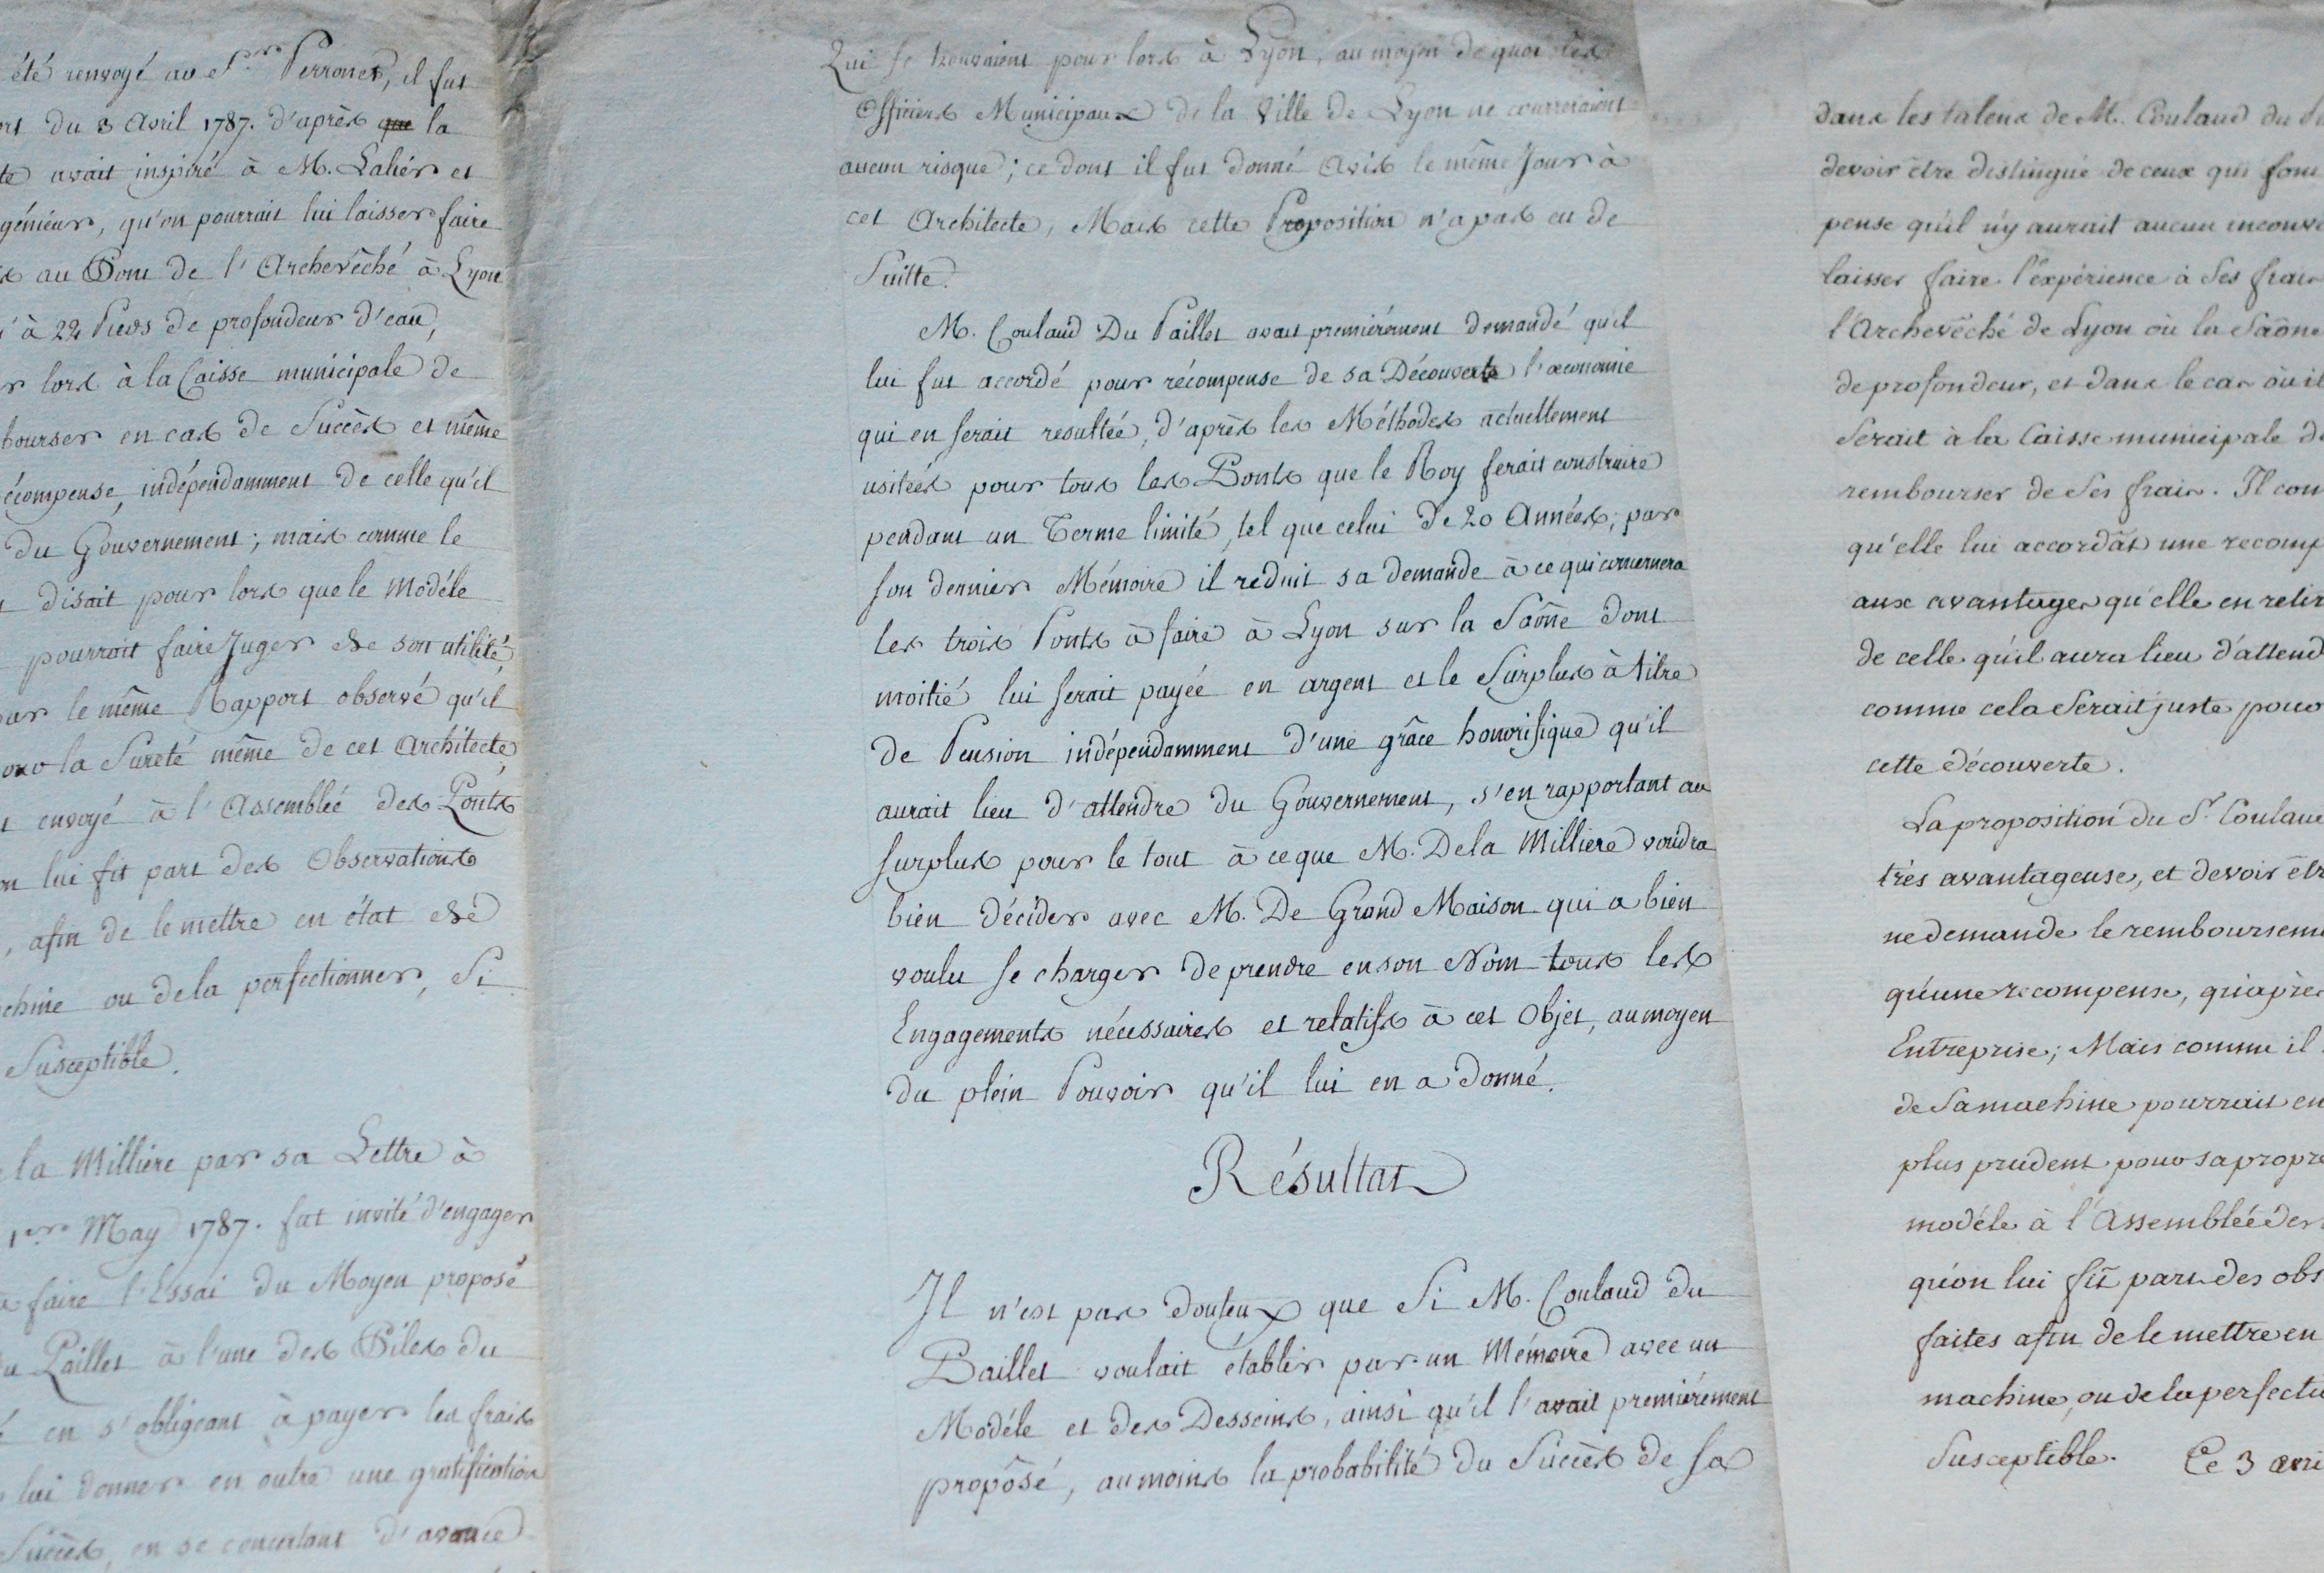 été renvoyé au Sr. Perronet, il fut
du 3 Avril 1787. d'après que la
avait inspiré à M. Lallié et
génieur, qu'on pourrait lui laisser faire
au Pont de l'Archevêché à Lyon
à 22 Pieds de profondeur d'eau,
lors à la Caisse municipale de
bourser en cas de Succès et même
écompense, indépendamment de celle qu'il
du Gouvernement; mais comme le
disait pour lors que le Modéle
pourrait faire Juger de son utilité,
le même Rapport observé qu'il
la Sureté même de cet Architecte
envoyé à l'Assemblée des Ponts
lui fit part des Observations
, afin de le mettre en état de
chine ou de la perfectionner, Si
Susceptible.
la Milliere par sa Lettre à
1er May 1787. fut invité d'engager
faire l'Essai du Moyen proposé
Paillet à l'une des Piles du
en s'obligeant à payer les frais
lui donner en outre une gratification
Succès, en se concertant d'avance
Qui se trouvaient pour lors à Lyon, au moyen de quoi les
Officiers Municipaux de la Ville de Lyon ne courreraient
aucun risque; ce dont il fut donné Avis le même Jour à
cet Architecte, Mais cette Proposition n'a pas eu de
Suitte.
M. Coulaud Du Paillet avait premiérement demandé qu'il
lui fut accordé pour récompense de sa Découverte l'œconomie
qui en serait resultée, d'après les Méthodes actuellement
usitées pour tous les Ponts que le Roy ferait construire
pendant un Terme limité, tel que celui de 20 Années; par
son dernier Mémoire il reduit sa demande à ce qui concernera
les trois Ponts à faire à Lyon sur la Saône dont
moitié lui serait payée en argent et le Surplus à titre
de Pension indépendamment d'une grâce honorifique qu'il
aurait lieu d'attendre du Gouvernement, s'en rapportant au
surplus pour le tout à ce que M. De la Milliere voudra
bien décider avec M. De Grand Maison qui a bien
voulu se charger de prendre en son Nom tous les
Engagements nécessaires et relatifs à cet Objet, au moyen
du plein Pouvoir qu'il lui en a donné.
Résultat
Il n'est pas douteux que Si M. Coulaud du
Paillet voulait établir par un Mémoire avec un
Modéle et des Desseins, ainsi qu'il l'avait premiérement
propôsé, au moins la probabilité du Succès de sa
dans les talens de M. Coulaud du
devoir être distingué de ceux qui font
pense qu'il n'y aurait aucun
laisser faire l'expérience à Ses frais
l'Archevêché de Lyon où la Saône
de profondeur, et dans le cas où il
Serait à la Caisse municipale de
rembourser de Ses frais. Il
qu'elle lui accordât une recomp
aux avantages qu'elle en retir
de celle qu'il aura lieu d'attend
comme cela Serait juste pour
cette découverte.
La proposition du Sr. Coulaud
très avantageuse, et devoir êtr
ne demande le rembourseme
qu'une recompense, qu'après
Entreprise; Mais comme il
de Sa machine pourrait en
plus prudent pour sa propre
modéle à l'Assemblée des
qu'on lui fît part des obs
faites afin de le mettre en
machine, ou de la perfectio
Susceptible. Ce 3 avri